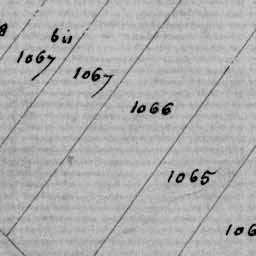 bis
1067
1067
1066
1065